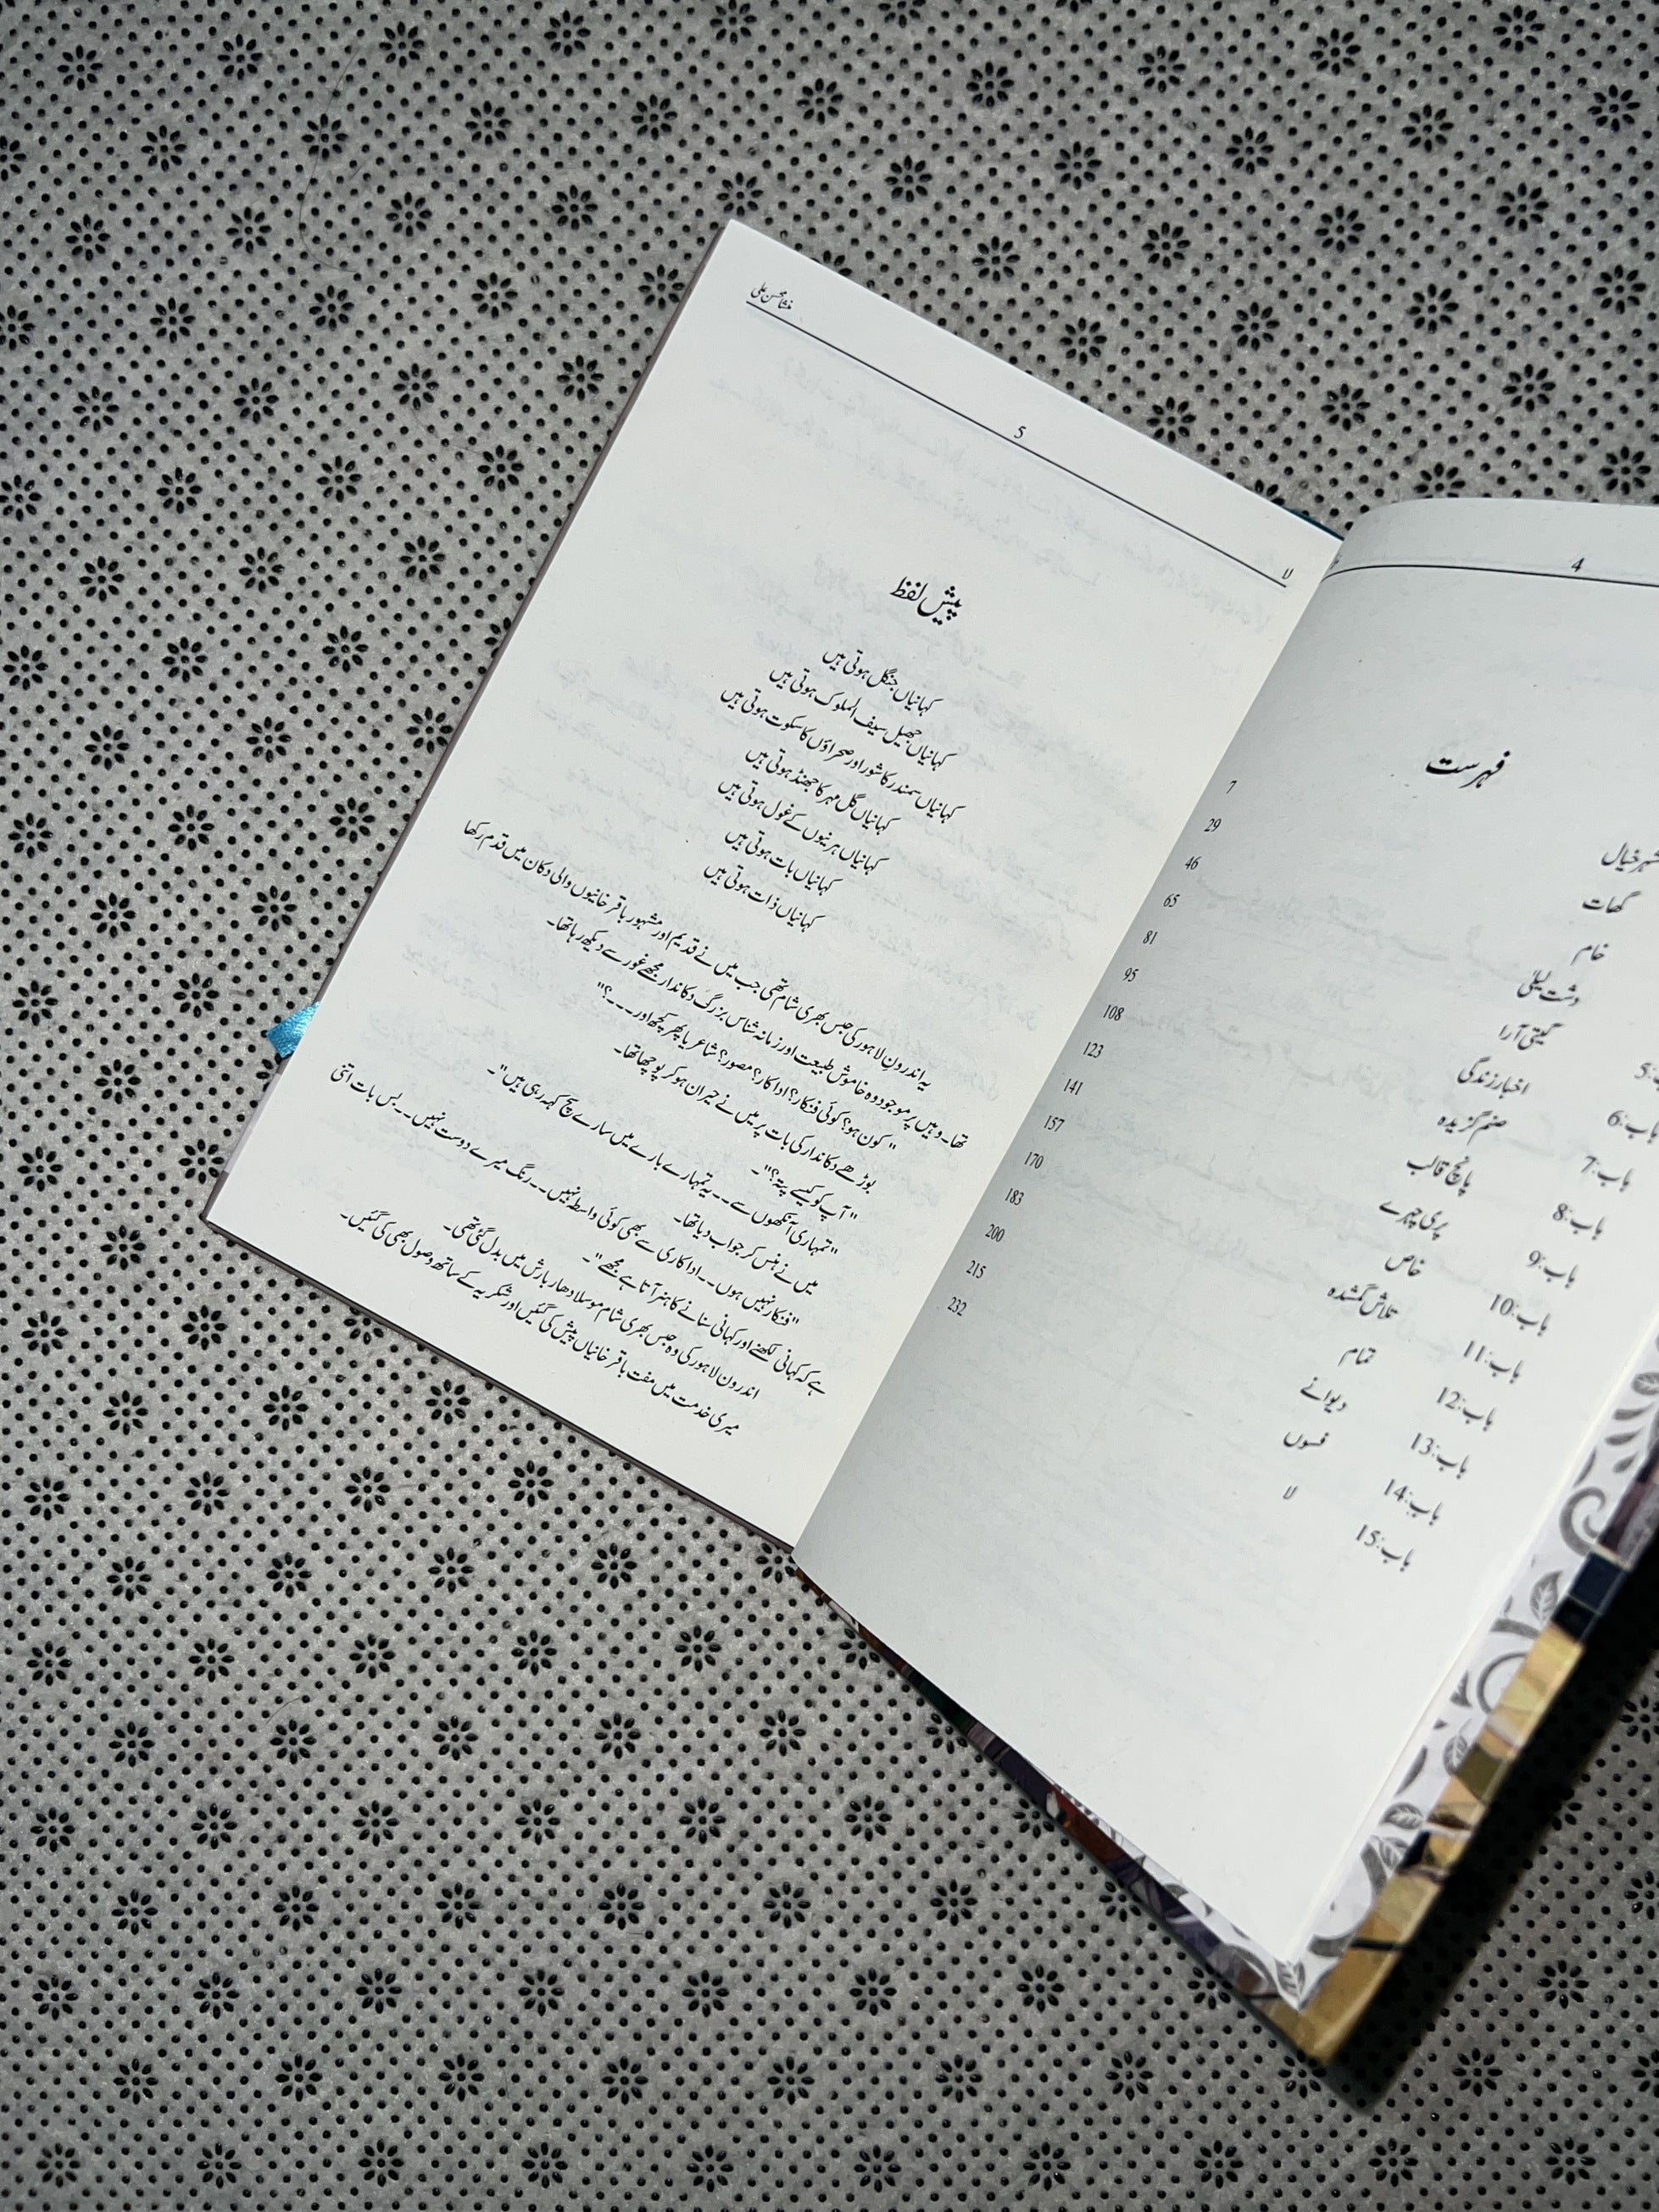 4
فہرست
شہر خیال 7
گھات 29
خام 46
دشت لیلیٰ 65
5: گیتی آرا 81
باب:6 اخبار زندگی 95
باب:7 صنم گزیدہ 108
باب:8 پانچ قالب 123
باب:9 پری چہرے 141
باب:10 خاص 157
باب:11 تلاش گمشدہ 170
باب:12 تمام 183
باب:13 دیوانے 200
باب:14 فسوں 215
باب:15 لا 232
لا 5 منشا محسن علی
پیش لفظ
کہانیاں جنگل ہوتی ہیں
کہانیاں جھیل سیف الملوک ہوتی ہیں
کہانیاں سمندر کا شور اور صحراؤں کا سکوت ہوتی ہیں
کہانیاں گل مہر کا جھنڈ ہوتی ہیں
کہانیاں ہرنیوں کے غول ہوتی ہیں
کہانیاں بات ہوتی ہیں
کہانیاں ذات ہوتی ہیں
یہ اندرون لاہور کی حبس بھری شام تھی جب میں نے قدیم اور مشہور باقر خانیوں والی دکان میں قدم رکھا
تھا۔ وہیں پر موجود وہ خاموش طبیعت اور زمانہ شناس بزرگ دکاندار مجھے غور سے دیکھ رہا تھا۔
"کون ہو؟ کوئی فنکار؟ اداکار؟ مصور؟ شاعر یا پھر کچھ اور۔۔۔؟"
بوڑھے دکاندار کی بات پر میں نے حیران ہو کر پوچھا تھا۔
"آپ کو کیسے پتہ؟"۔
"تمہاری آنکھوں سے۔۔ یہ تمہارے بارے میں سارے سچ کہہ رہی ہیں"۔
میں نے ہنس کر جواب دیا تھا۔
"فنکار نہیں ہوں۔۔ اداکاری سے بھی کوئی واسطہ نہیں۔۔ رنگ میرے دوست نہیں۔۔ بس بات اتنی
ہے کہ کہانی لکھنے اور کہانی سنانے کا ہنر آتا ہے مجھے"۔
اندرون لاہور کی وہ حبس بھری شام موسلا دھار بارش میں بدل گئی تھی۔
میری خدمت میں مفت باقر خانیاں پیش کی گئیں اور شکریہ کے ساتھ وصول بھی کی گئیں۔